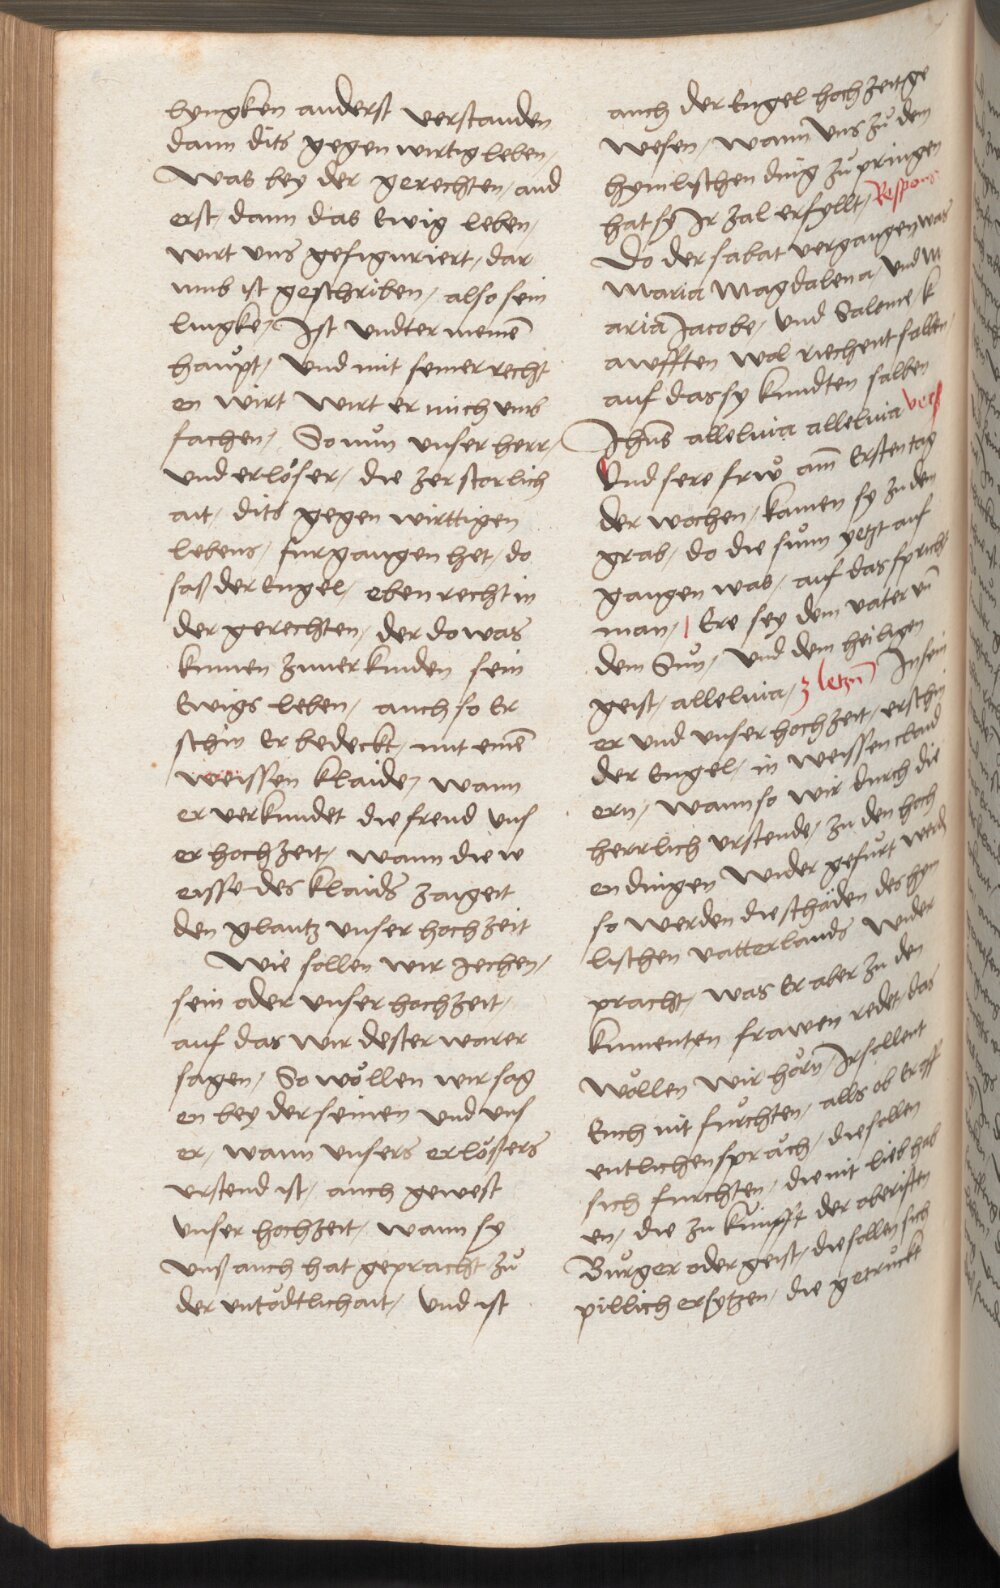 lengken anderst verstanden
dann dits gegen wirtig leben,
Was bey der gerechten, and
erst, dann das Ewig leben,
wirt uns gefiguriert, dar
umb ist geschriben, also sein
lingke, Ist undter meinē
haupt, und mit seiner recht
en wirt wirt er mich umb
fachen, So nun unser herr,
und erlöser, die zerstorlich
ait, dits gegen wirttigen
lebens, furgangen het, do
saß der Engel, eben recht in
der gerechten, der do was
kumen zuuerkunden sein
Ewigs leben, auch so Er
schin Er bedeckt, mit einē
weissen klaide, wann
er verkundet die freud uns
er hochzeit, wann die w
eisse des klaids zaigeit
den glantz unser hochzeit
Wie sollen wir Jechen,
sein oder unser hochzeit,
auf das wir dester warer
sagen, So wöllen wir sag
en bey der seinen und uns
er, wann unsers erlößers
urstend ist, auch gewest
unser hochzeit, wann sy
unß auch hat gepracht zů
der untödtlichait, Und ist
auch der Engel hochzeit ge
wesen, wann uns zů dem
hymlischen ding zů pringen
hat sy Ir zal erfyllt, Respons
Do der sabat vergangen was
Maria Magdalena, und M
aria Jacobe, und Salome k
awfften wol riechent salben
auf das sy kundten salben
Jhūs alleluia alleluia vers
Und sere frẘ am̄ Ersten tag
der wochen, kamen sy zu dem
grab, do die sunn yetzt auf
gangen was, auf das spricht
man, Ere sey dem vater un̄
dem Sun, und dem heiligen
geist, alleluia, z letzn̄ In sein
er und unser hochzeit, erschin
der Engel, in weissen claid
ern, wann so wir durch die
herrlich urstende, zu den hoch
en dingen wider gefurt werd
so werden die schäden des hym
lischen vatterlands wider
pracht, was Er aber zu den
kumenten frawen redet, das
wöllen wir hörn, Ir sollent
Euch nit fürchten, alls ob Er off
entlichen spräch, die sollen
sich furchten, die nit lieb hab
en, die zu kunfft der oberisten
Burger oder geist, die sollen sich
pillich ersytzen, die getruckt